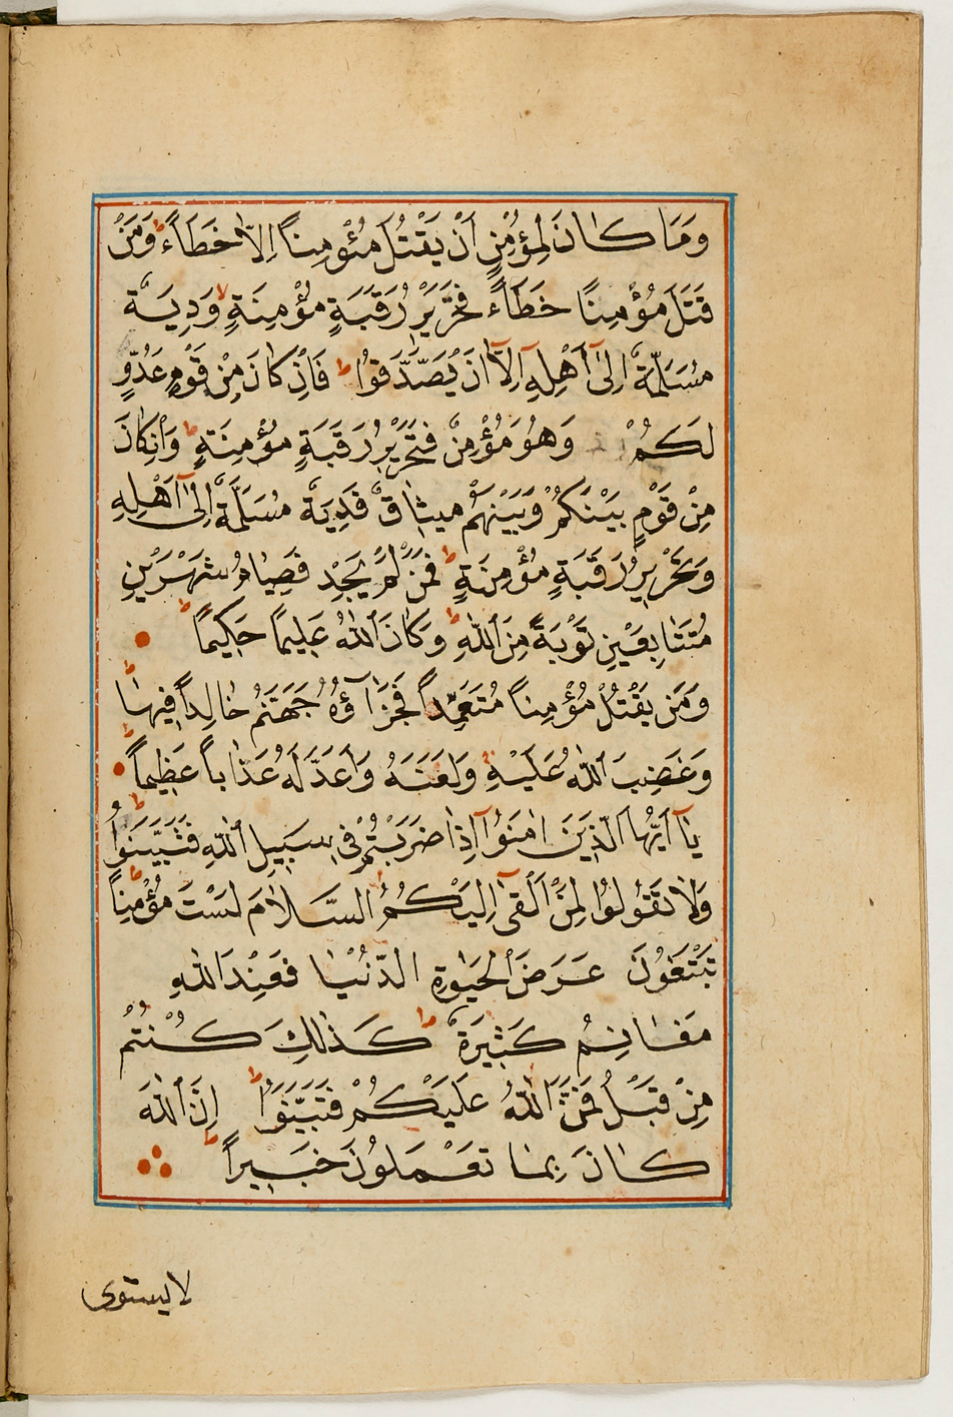 وَمَا كَانَ لِمُؤْمِنٍ اَنْ يَقْتُلَ مُئْومِناً اِلاَّ خَطَاءً وَمَنْ
قَتَلَ مُؤْمِنًا خَطَاءً فَتَحْرَيْرُ رَقَبَةٍ مُؤْمِنَةٍ وَدِيَةٌ
مُسَلَّمَةٌ اِلٰٓى اَهْلِهِ اِلآَّ اَنْ يَصَّدَّقوُا فَاِنْ كَانَ مِنْ قَوْمٍ عَدُوٍّ
لَكُمْ وَهُوَ مُؤْمِنٌ فَتَحْرَيْرُ رَقَبَةٍ مُؤْمِنَةٍ وَاِنْ كَانَ
مِنْ قَوْمٍ بَيْنَكُمْ وَبَيْنَهُمْ ميثٰاقٌ فَدِيَةٌ مُسَلَّمَةٌ اِلٰٓى اَهْلِهِ
وَتَحْريرُ رَقَبَةٍ مُؤْمِنَةٍ فَمَنْ لَمْ يَجِدْ فَصِيٰامُ شَهْرَيْنِ
مُتَتٰابِعَيْنِ تَوْبَةً مِنَ اللّٰهِ وَكَانَ اللّٰهُ عَلِيمًا حَكِيمًا
وَمَن يَقْتُلْ مُؤْمِناً مُتَعَمِّداً فَجَزَآؤُهُ جَهَنَّمُ خٰالِداً فِيهٰا
وَغَضِبَ اللّٰهُ عَلَيْهِ وَلَعَنَهُ وَاَعَدَّ لَهُ عَذٰاباً عَظِيماً
يٰآ اَيُّهَا الَّذِيَنَ اٰمَنَوُآ اِذٰا ضَرَبْتُمْ فِى سَبَيِلِ اللّٰهِ فَتَبَيَّنَوُا
وَلاٰ تَقَوُلوُا لِمَنْ اَلْقىٰٓ اِلَيْكُمُ السَّلاٰمَ لَسْتَ مُؤْمِناً
تَبْتَغوُنَ عَرَضَ الْحَيٰوةِ الدُّنْيٰا فَعِنْدَ اللّٰهِ
مَغٰانِمُ كَثِيَرةٌ كَذٰلِكَ كُنْتُمْ
مِنْ قَبْلُ فَمَنَّ اللّٰهُ عَلَيْكُمْ فَتَبَيَّنَوُا اِنَّ اللّٰهَ
كٰانَ بِمٰا تَعْمَلوُنَ خَبَيِراً
لا يستوى